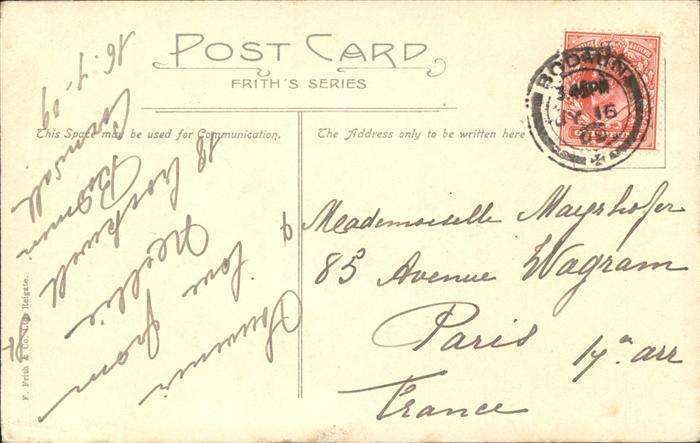 POST CARD
FRITH'S SERIES
BODMIN
3.45PM
JY 16
09
This Space may be used for Communication.
The Address only to be written here
Mademoiselle Mayrhofer
85 Avenue Wagram
Paris
17a arr
France
16.7.09
Cornwall
Bodmin
18
love
from
F. Frith & Co. Ltd. Reigate.